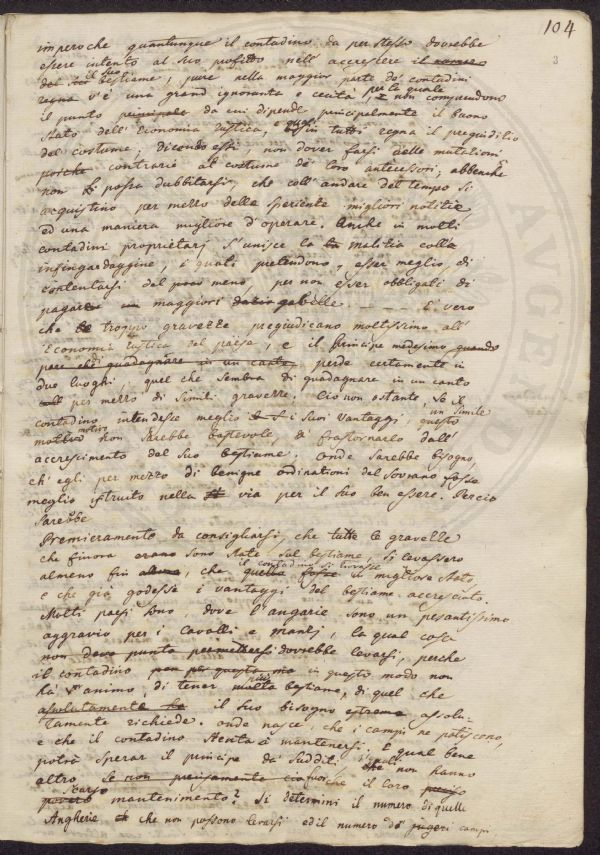 104
3
imperoche quantunque il contadino da per stesso dovrebbe
essere intento al suo profitto nell' accrescere il numero
del suo il suo bestiame, pure nella maggior parte de' contadini
regna v'è una grand ignoranza e cecità, per la quale non comprendono
il punto principale da cui dipende principalmente il buono
stato dell' Economia rustica, e quasi in tutti regna il pregiudizio
del costume, dicendo essi, non dover farsi delle mutazioni
perche contrarie al costume de' loro antecessori, abbenche
non si possa dubbitarsi, che coll' andare del tempo si
acquistino per mezzo della sperienza migliori notitie,
ed una maniera migliore d'operare. Anche in molti
contadini proprietarj s'unisce la malitia colla
infingardaggine, i quali pretendono, esser meglio, di
contentarsi del poco meno, per non esser obbligati di
pagare maggiori dazio gabelle. — — E vero
che le troppo gravezze pregiudicano moltissimo all'
Economia rustica del paese, e il Principe medesimo quando
pare che di guadagnare in un canto, perde certamente in
due luoghi, quel che sembra di guadagnare in un canto
per mezzo di simili gravezze. Ciò non ostante, se il
contadino intendesse meglio i suoi vantaggi, questo un simile
motivo motivo non sarebbe bastevole, a frastornarlo dall'
accrescimento del suo bestiame. Onde sarebbe bisogno,
ch' egli per mezzo di benigne ordinationi dal Sovrano fosse
meglio istruito nella via per il suo ben essere. Perciò
sarebbe
Premieramente da consigliarsi, che tutte le gravezze
che finora erano sono state sul bestiame, si levassero
almeno fin che il contadino si trovasse in migliore stato,
e che già godesse i vantaggi del bestiame accresciuto.
Molti paesi sono, dove l'angarie sono un pesantissimo
aggravio per i cavalli e manzi, la qual cosa
non deve punto permettersi dovrebbe levarsi, perche
il contadino in questo modo non
ha animo, di tener più bestiame, di quel che
assolutamente il suo bisogno estremo assolu-
tamente richiede. onde nasce, che i campi ne patiscono,
e che il contadino stenta à mantenersi. E qual bene
potrà sperar il principe da' sudditi, i quali non hanno
altro se non precisamente che il loro
scarso mantenimento? Si determini il numero di quelle
Angherie che non possono levarsi ed il numero de' jugeri campi